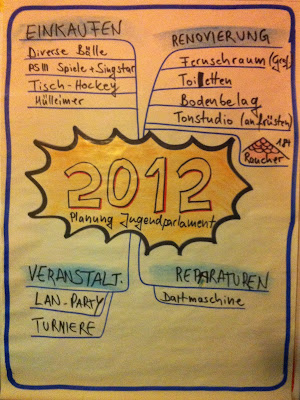 EINKAUFEN
Diverse Bälle
PSIII Spiele + Singstar
Tisch-Hockey
Mülleimer
RENOVIERUNG
Fernschraum (Gr)
Toiletten
Bodenbelag
Tonstudio (aufrüsten)
184
Raucher
2012
Planung Jugendparlament
VERANSTALT.
LAN-PARTY
TURNIERE
REPARATUREN
Dartmaschine